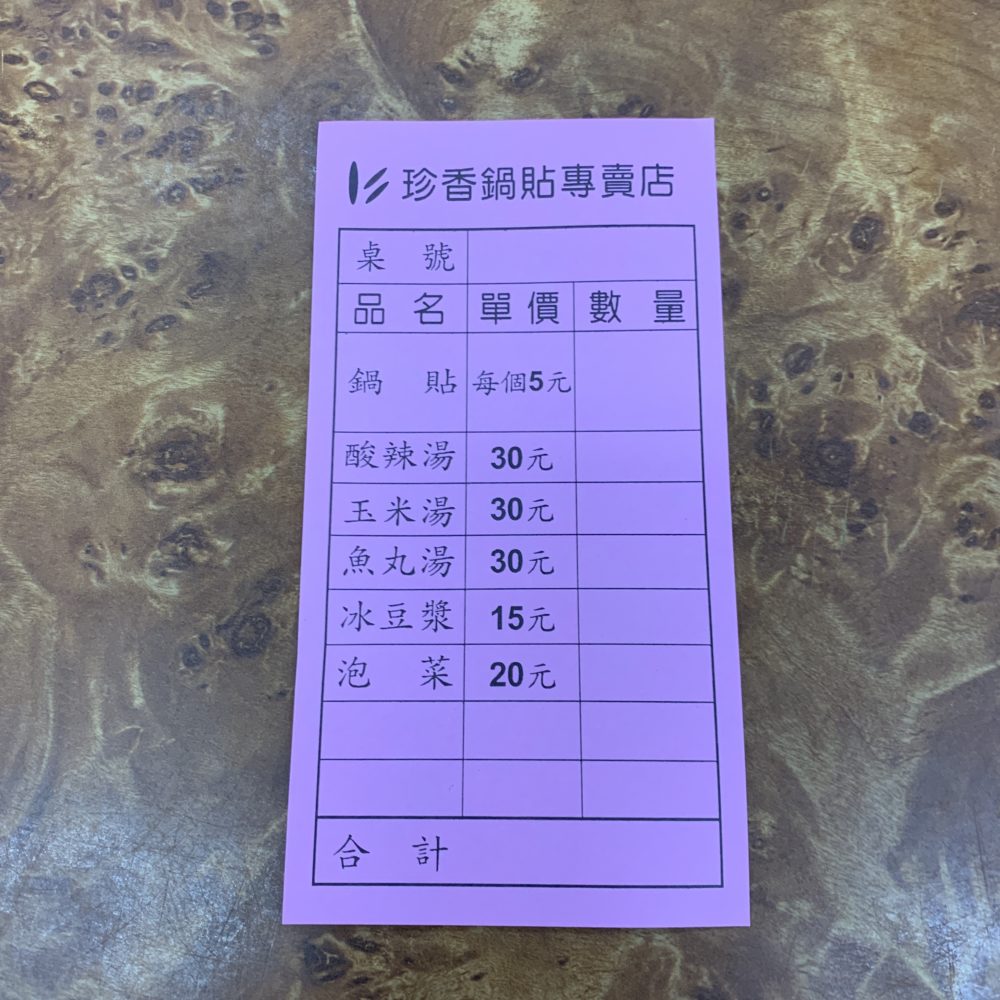 珍香鍋貼專賣店
桌號
品名 單價 數量
鍋貼 每個5元
酸辣湯 30元
玉米湯 30元
魚丸湯 30元
冰豆漿 15元
泡菜 20元
合計